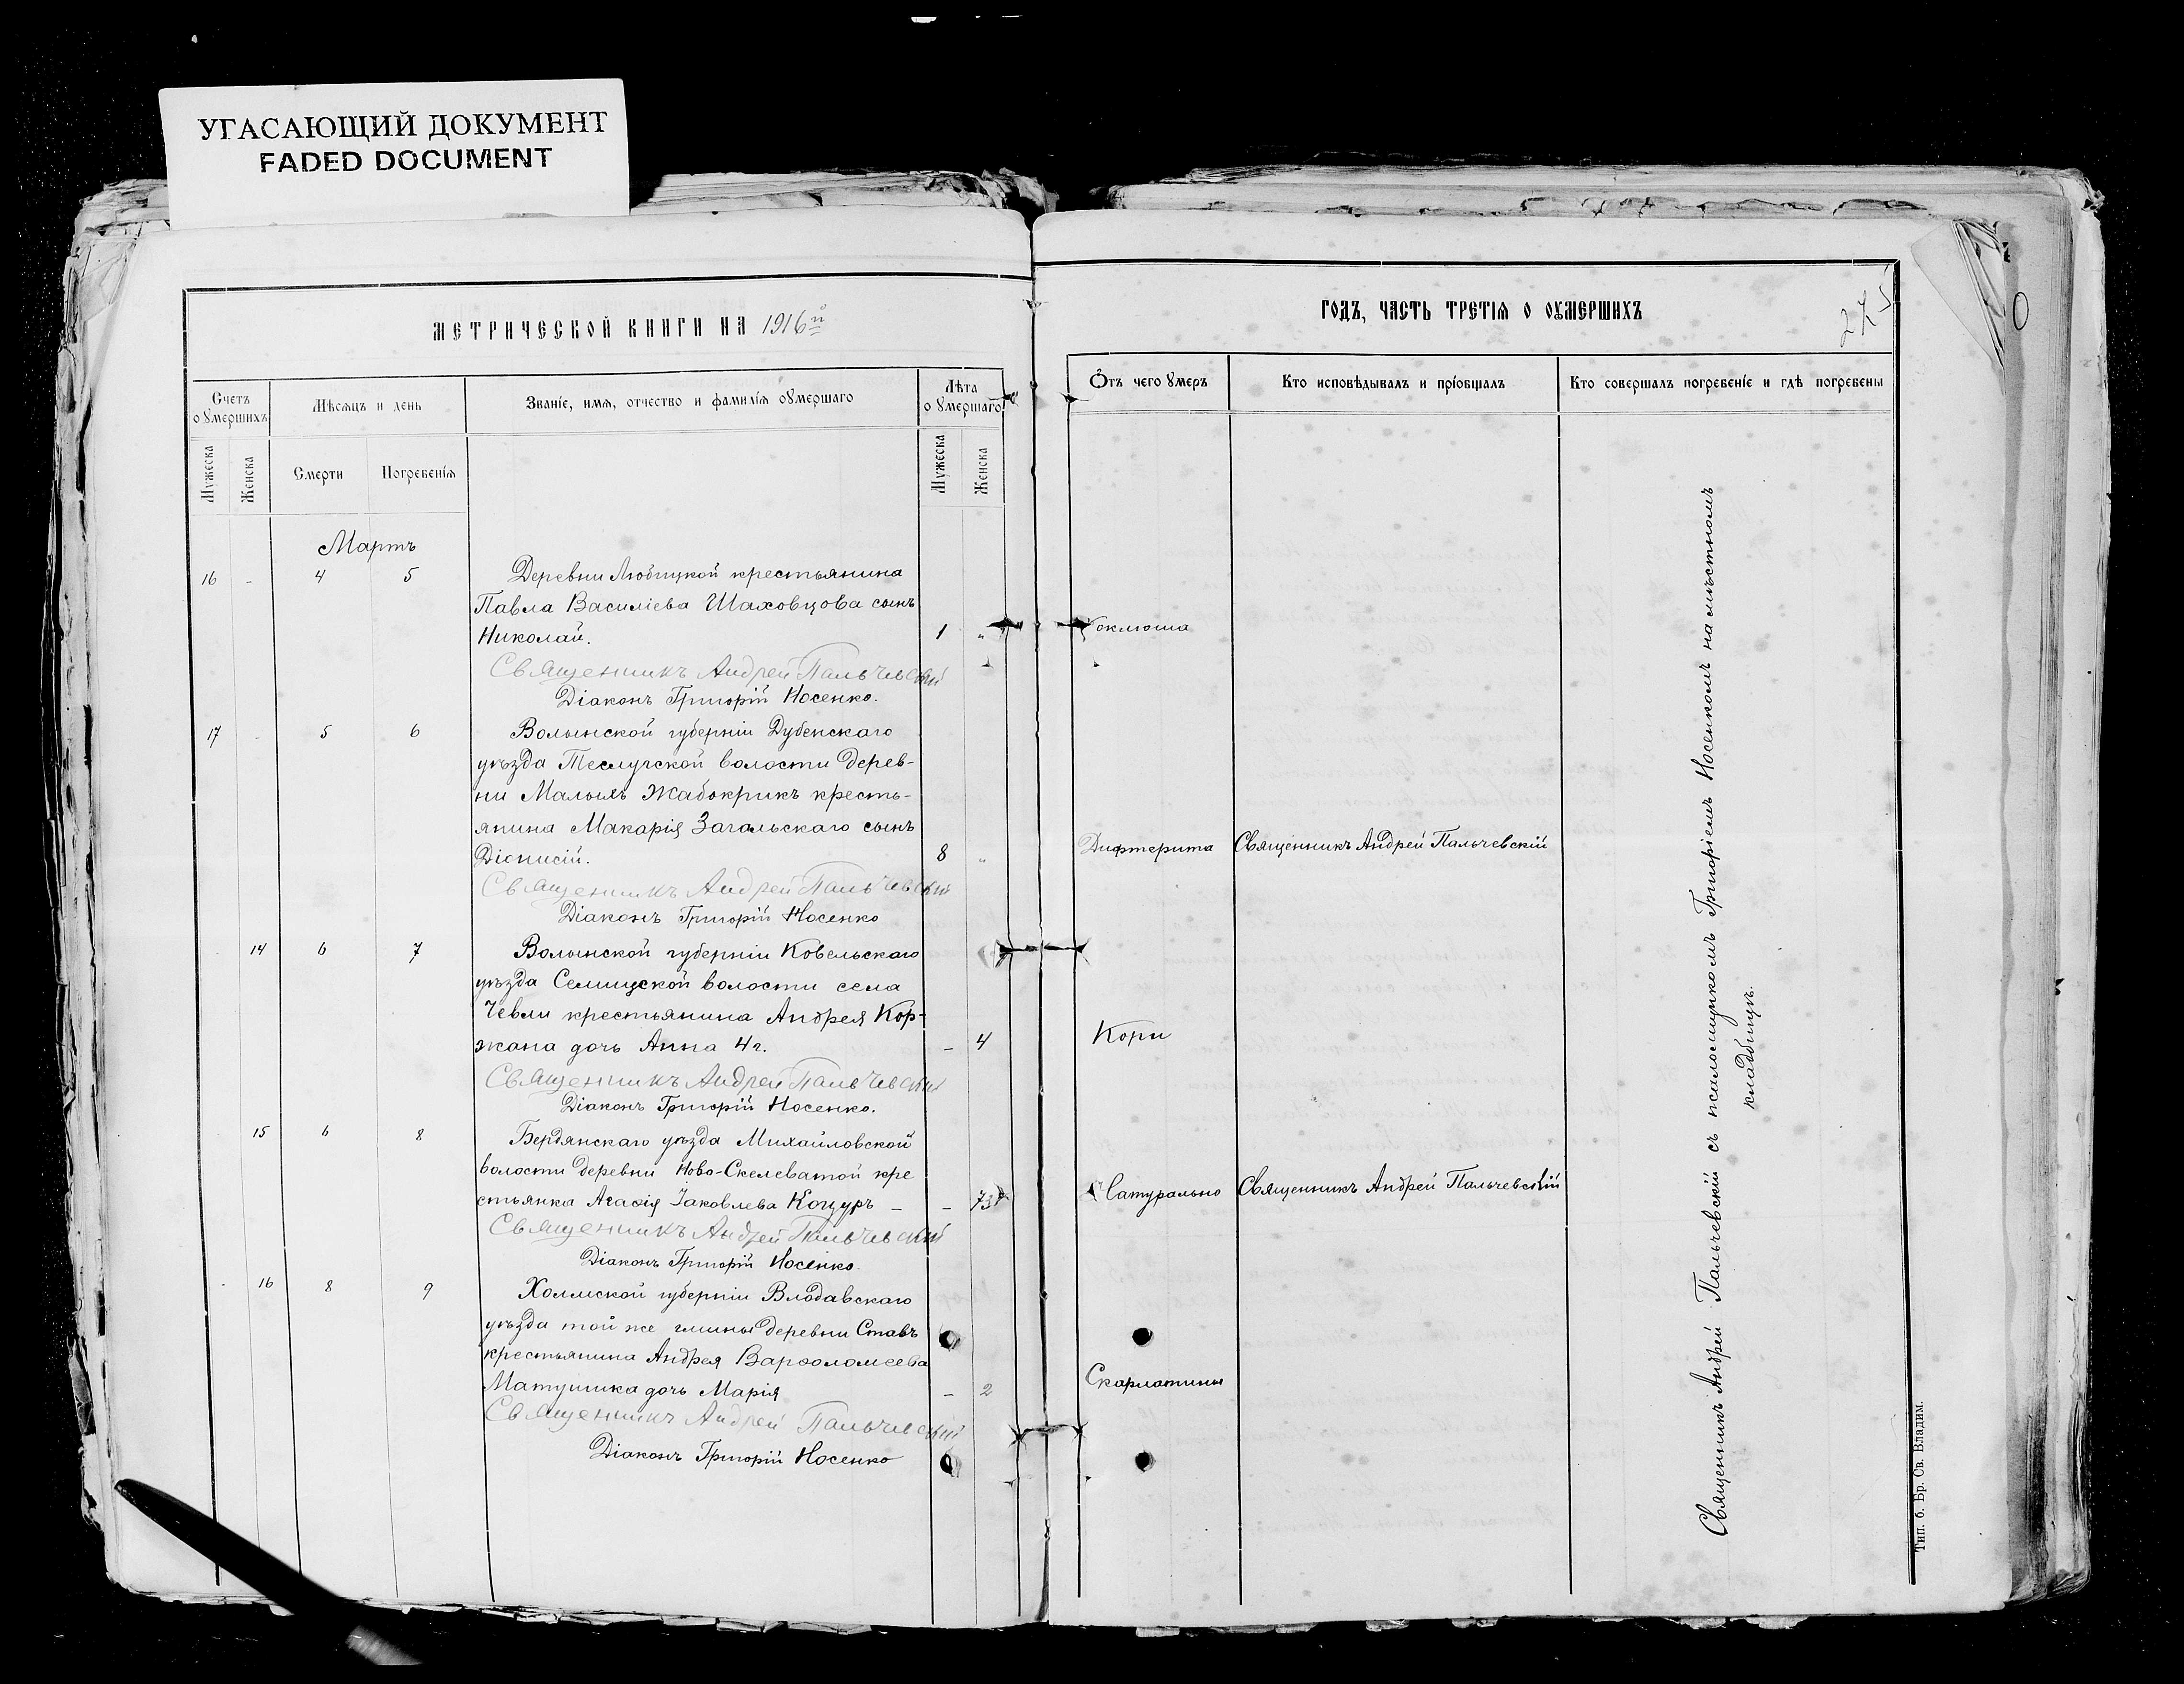 УГАСАЮЩИЙ ДОКУМЕНТ
FADED DOCUMENT
МЕТРИЧЕСКОЙ КНИГИ НА 1916й
Счетъ оумершихъ
Мѣсяцъ и день
Званіе, имя, отчество и фамилія оумершаго
Лѣта оумершаго
Мужеска
Женска
Смерти
Погребенія
Мужеска
Женска
Мартъ
16 - 4 5 Деревни Любицкой крестьянина
Павла Василіева Шаховцова сынъ
Николай. 1 „
Священникъ Андрей Пальчевскій
Діаконъ Григорій Носенко.
17 - 5 6 Волынской губерніи Дубенскаго
уѣзда Теслугской волости дерев-
ни Малыхъ Жабокрикъ кресть-
янина Макарія Загальскаго сынъ
Діонисій. 8 „
Священникъ Андрей Пальчевскій
Діаконъ Григорій Носенко
- 14 6 7 Волынской губерніи Ковельскаго
уѣзда Селищской волости села
Чевли крестьянина Андрея Кор-
жана дочь Анна 4г. - 4
Священникъ Андрей Пальчевскій
Діаконъ Григорій Носенко.
- 15 6 8 Бердянскаго уѣзда Михайловской
волости деревни Ново-Скелеватой кре
стьянка Агаѳія Іаковлева Коцуръ - - 73
Священникъ Андрей Пальчевскій
Діаконъ Григорій Носенко
- 16 8 9 Холмской губерніи Влодавскаго
уѣзда той же гмины деревни Ставъ
крестьянина Андрея Варѳоломеева
Матушика дочь Марія - 2
Священникъ Андрей Пальчевскій
Діаконъ Григорій Носенко
ГОДЪ, ЧАСТЬ ТРЕТІЯ О ОУМЕРШИХЪ
275
Отъ чего умеръ
Кто исповѣдывалъ и пріобщалъ
Кто совершалъ погребеніе и гдѣ погребены
Коклюша
Дифтерита Священникъ Андрей Пальчевскій
Кори
Натурально Священникъ Андрей Пальчевскій
Скарлатины
Священникъ Андрей Пальчевскій съ псаломщикомъ Григоріемъ Носенкомъ на мѣстномъ
кладбищѣ.
Тип. б. Бр. Св. Владим.